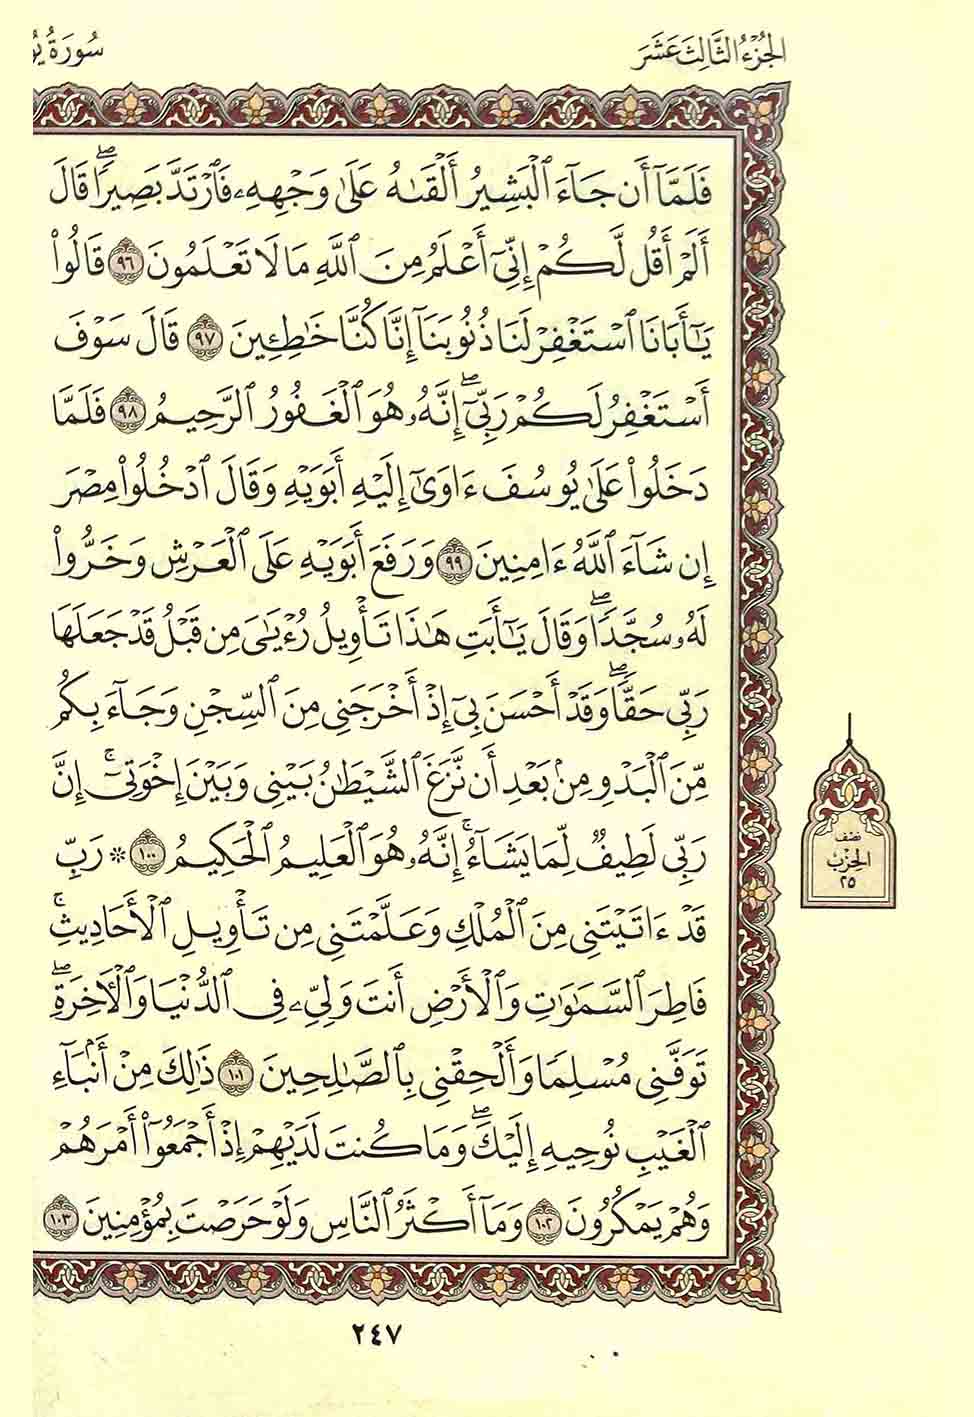 الجزء الثالث عشر
سورة يو
فَلَمَّآ أَن جَآءَ ٱلۡبَشِيرُ أَلۡقَىٰهُ عَلَىٰ وَجۡهِهِۦ فَٱرۡتَدَّ بَصِيرٗاۖ قَالَ
أَلَمۡ أَقُل لَّكُمۡ إِنِّيٓ أَعۡلَمُ مِنَ ٱللَّهِ مَا لَا تَعۡلَمُونَ ٩٦ قَالُواْ
يَٰٓأَبَانَا ٱسۡتَغۡفِرۡ لَنَا ذُنُوبَنَآ إِنَّا كُنَّا خَٰطِـِٔينَ ٩٧ قَالَ سَوۡفَ
أَسۡتَغۡفِرُ لَكُمۡ رَبِّيٓۖ إِنَّهُۥ هُوَ ٱلۡغَفُورُ ٱلرَّحِيمُ ٩٨ فَلَمَّا
دَخَلُواْ عَلَىٰ يُوسُفَ ءَاوَىٰٓ إِلَيۡهِ أَبَوَيۡهِ وَقَالَ ٱدۡخُلُواْ مِصۡرَ
إِن شَآءَ ٱللَّهُ ءَامِنِينَ ٩٩ وَرَفَعَ أَبَوَيۡهِ عَلَى ٱلۡعَرۡشِ وَخَرُّواْ
لَهُۥ سُجَّدٗاۖ وَقَالَ يَٰٓأَبَتِ هَٰذَا تَأۡوِيلُ رُءۡيَٰيَ مِن قَبۡلُ قَدۡ جَعَلَهَا
رَبِّي حَقّٗاۖ وَقَدۡ أَحۡسَنَ بِيٓ إِذۡ أَخۡرَجَنِي مِنَ ٱلسِّجۡنِ وَجَآءَ بِكُم
مِّنَ ٱلۡبَدۡوِ مِنۢ بَعۡدِ أَن نَّزَغَ ٱلشَّيۡطَٰنُ بَيۡنِي وَبَيۡنَ إِخۡوَتِيٓۚ إِنَّ
رَبِّي لَطِيفٞ لِّمَا يَشَآءُۚ إِنَّهُۥ هُوَ ٱلۡعَلِيمُ ٱلۡحَكِيمُ ١٠٠ ۞ رَبِّ
قَدۡ ءَاتَيۡتَنِي مِنَ ٱلۡمُلۡكِ وَعَلَّمۡتَنِي مِن تَأۡوِيلِ ٱلۡأَحَادِيثِۚ
فَاطِرَ ٱلسَّمَٰوَٰتِ وَٱلۡأَرۡضِ أَنتَ وَلِيِّۦ فِي ٱلدُّنۡيَا وَٱلۡأٓخِرَةِۖ
تَوَفَّنِي مُسۡلِمٗا وَأَلۡحِقۡنِي بِٱلصَّٰلِحِينَ ١٠١ ذَٰلِكَ مِنۡ أَنۢبَآءِ
ٱلۡغَيۡبِ نُوحِيهِ إِلَيۡكَۖ وَمَا كُنتَ لَدَيۡهِمۡ إِذۡ أَجۡمَعُوٓاْ أَمۡرَهُمۡ
وَهُمۡ يَمۡكُرُونَ ١٠٢ وَمَآ أَكۡثَرُ ٱلنَّاسِ وَلَوۡ حَرَصۡتَ بِمُؤۡمِنِينَ ١٠٣
نصف
الحزب
٢٥
٢٤٧